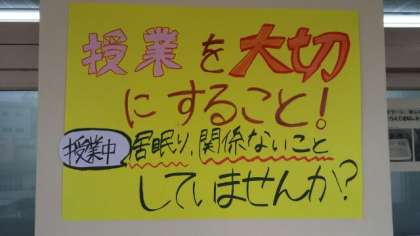 授業を大切
にすること!
授業中 居眠り、関係ないこと
していませんか?